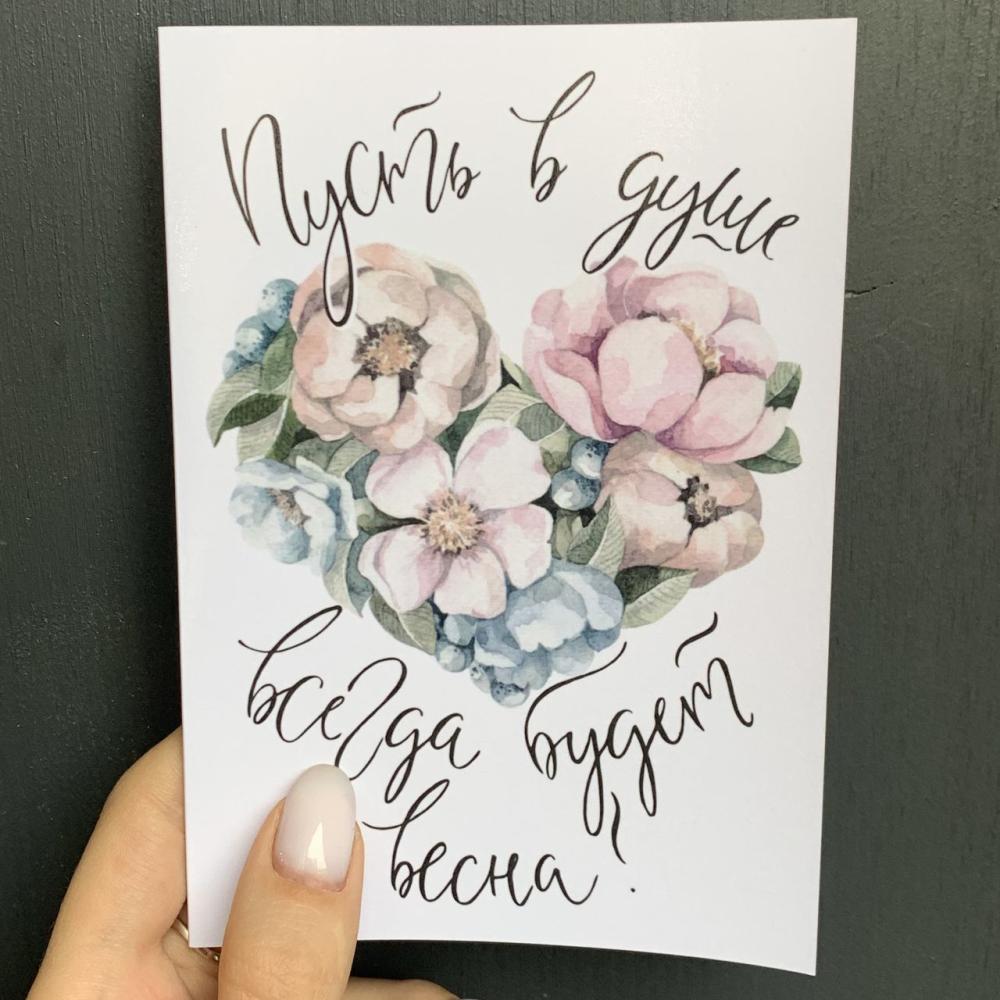 Пусть в душе
всегда будет
весна!